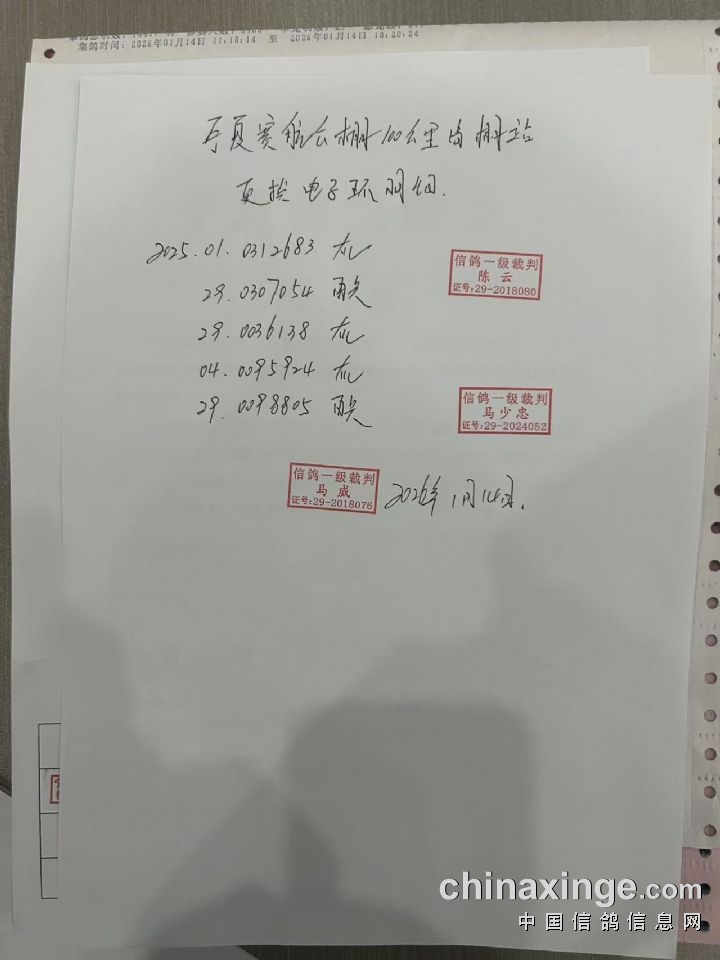 集鸽时间: 2026年01月14日 11:18:14 至 2026年01月14日 18:20:24
宁夏赛鸽公棚100公里出棚站
更换电子环明细.
2025.01.0312683 灰
29.0307054 雨点
29.0036138 灰
04.0095924 灰
29.0098805 雨点
信鸽一级裁判
陈云
证号:29-2018080
信鸽一级裁判
马少忠
证号:29-2024052
信鸽一级裁判
马威
证号:29-2018076
2026年1月14日.
chinaxinge.com
中国信鸽信息网